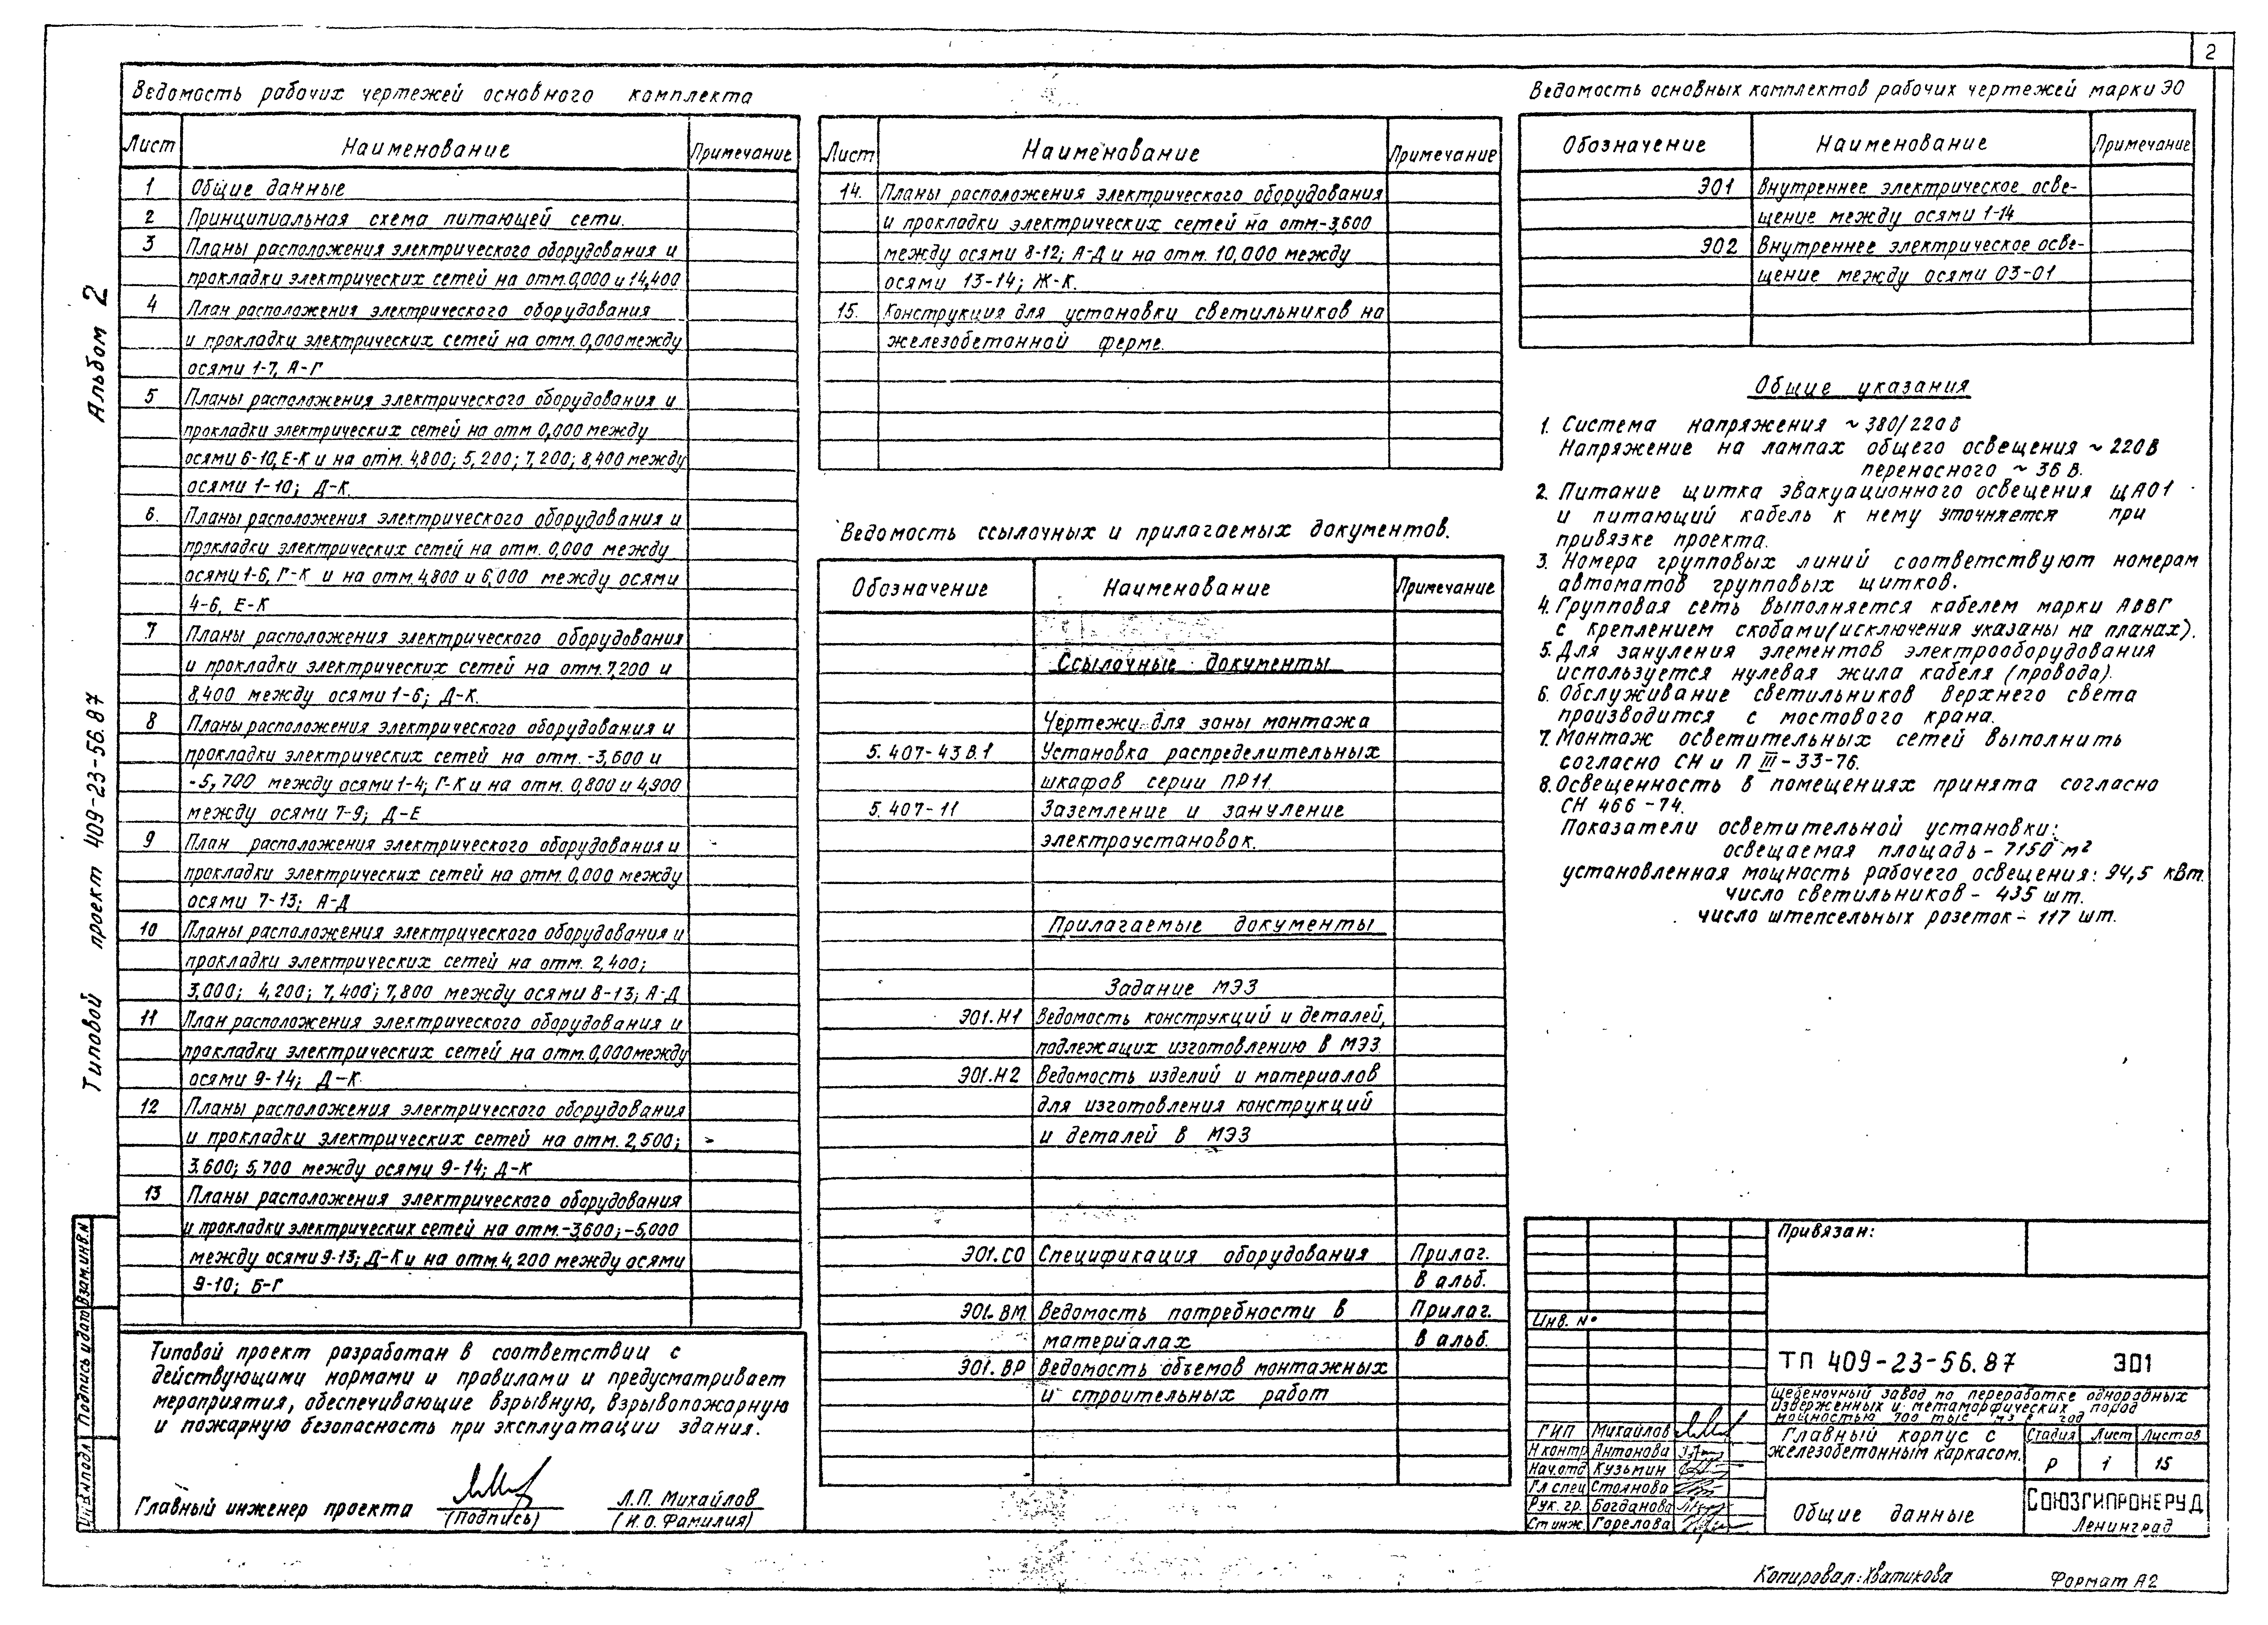 2
Альбом 2
Типовой проект 409-23-56.87
Ведомость рабочих чертежей основного комплекта
Лист Наименование Примечание
1 Общие данные
2 Принципиальная схема питающей сети.
3 Планы расположения электрического оборудования и
прокладки электрических сетей на отм. 0,000 и 14,400
4 План расположения электрического оборудования
и прокладки электрических сетей на отм. 0,000 между
осями 1-7, А-Г
5 Планы расположения электрического оборудования и
прокладки электрических сетей на отм 0,000 между
осями 6-10, Е-К и на отм. 4,800; 5,200; 7,200; 8,400 между
осями 1-10; Д-К.
6. Планы расположения электрического оборудования и
прокладки электрических сетей на отм. 0,000 между
осями 1-6, Г-К и на отм. 4,800 и 6,000 между осями
4-6, Е-К
7 Планы расположения электрического оборудования
и прокладки электрических сетей на отм. 7,200 и
8,400 между осями 1-6; Д-К.
8 Планы расположения электрического оборудования и
прокладки электрических сетей на отм. -3,600 и
-5,700 между осями 1-4; Г-К и на отм. 0,800 и 4,900
между осями 7-9; Д-Е
9 План расположения электрического оборудования и
прокладки электрических сетей на отм. 0,000 между
осями 7-13; А-Д
10 Планы расположения электрического оборудования и
прокладки электрических сетей на отм. 2,400;
3,000; 4,200; 7,400; 7,800 между осями 8-13; А-Д
11 План расположения электрического оборудования и
прокладки электрических сетей на отм. 0,000 между
осями 9-14; Д-К.
12 Планы расположения электрического оборудования
и прокладки электрических сетей на отм. 2,500;
3.600; 5,700 между осями 9-14; Д-К
13 Планы расположения электрического оборудования
и прокладки электрических сетей на отм. -3,600; -5,000
между осями 9-13; Д-К и на отм. 4,200 между осями
9-10; Б-Г
Типовой проект разработан в соответствии с
действующими нормами и правилами и предусматривает
мероприятия, обеспечивающие взрывную, взрывопожарную
и пожарную безопасность при эксплуатации здания.
Главный инженер проекта Л.П. Михайлов
(подпись) (И.О. Фамилия)
Инв.№подл Подпись и дата Взам.инв.№
Лист Наименование Примечание
14. Планы расположения электрического оборудования
и прокладки электрических сетей на отм -3,600
между осями 8-12; А-Д и на отм. 10,000 между
осями 13-14; Ж-К.
15. Конструкция для установки светильников на
железобетонной ферме.
Ведомость ссылочных и прилагаемых документов.
Обозначение Наименование Примечание
Ссылочные документы
Чертежи для зоны монтажа
5.407-43 В.1 Установка распределительных
шкафов серии ПР11
5.407-11 Заземление и зануление
электроустановок.
Прилагаемые документы
Задание МЭЗ
ЭО1.И1 Ведомость конструкций и деталей,
подлежащих изготовлению в МЭЗ
ЭО1.И2 Ведомость изделий и материалов
для изготовления конструкций
и деталей в МЭЗ
ЭО1.СО Спецификация оборудования Прилаг.
в альб.
ЭО1.ВМ Ведомость потребности в Прилаг.
материалах в альб.
ЭО1.ВР Ведомость объемов монтажных
и строительных работ
Ведомость основных комплектов рабочих чертежей марки ЭО
Обозначение Наименование Примечание
ЭО1 Внутреннее электрическое осве-
щение между осями 1-14
ЭО2 Внутреннее электрическое осве-
щение между осями 03-01
Общие указания
1. Система напряжения ~ 380/220 В
Напряжение на лампах общего освещения ~ 220В
переносного ~ 36 В.
2. Питание щитка эвакуационного освещения ЩАО1
и питающий кабель к нему уточняется при
привязке проекта.
3. Номера групповых линий соответствуют номерам
автоматов групповых щитков.
4. Групповая сеть выполняется кабелем марки АВВГ
с креплением скобами (исключения указаны на планах).
5. Для зануления элементов электрооборудования
используется нулевая жила кабеля (провода).
6. Обслуживание светильников верхнего света
производится с мостового крана.
7. Монтаж осветительных сетей выполнить
согласно СН и П III-33-76.
8. Освещенность в помещениях принята согласно
СН 466-74.
Показатели осветительной установки:
освещаемая площадь - 7150 м²
установленная мощность рабочего освещения: 94,5 кВт.
число светильников - 435 шт.
число штепсельных розеток - 117 шт.
Привязан:
Инв. №
ТП 409-23-56.87 ЭО1
Щебеночный завод по переработке однородных
изверженных и метаморфических пород
мощностью 700 тыс м³ в год
ГИП Михайлов
Н контр Антонова
Нач.отд Кузьмин
Гл спец Столнова
Рук. гр. Богданова
Ст инж. Горелова
Главный корпус с
железобетонным каркасом.
Стадия Лист Листов
Р 1 15
Общие данные
СОЮЗГИПРОНЕРУД
Ленинград
Копировал: Хватикова Формат А2